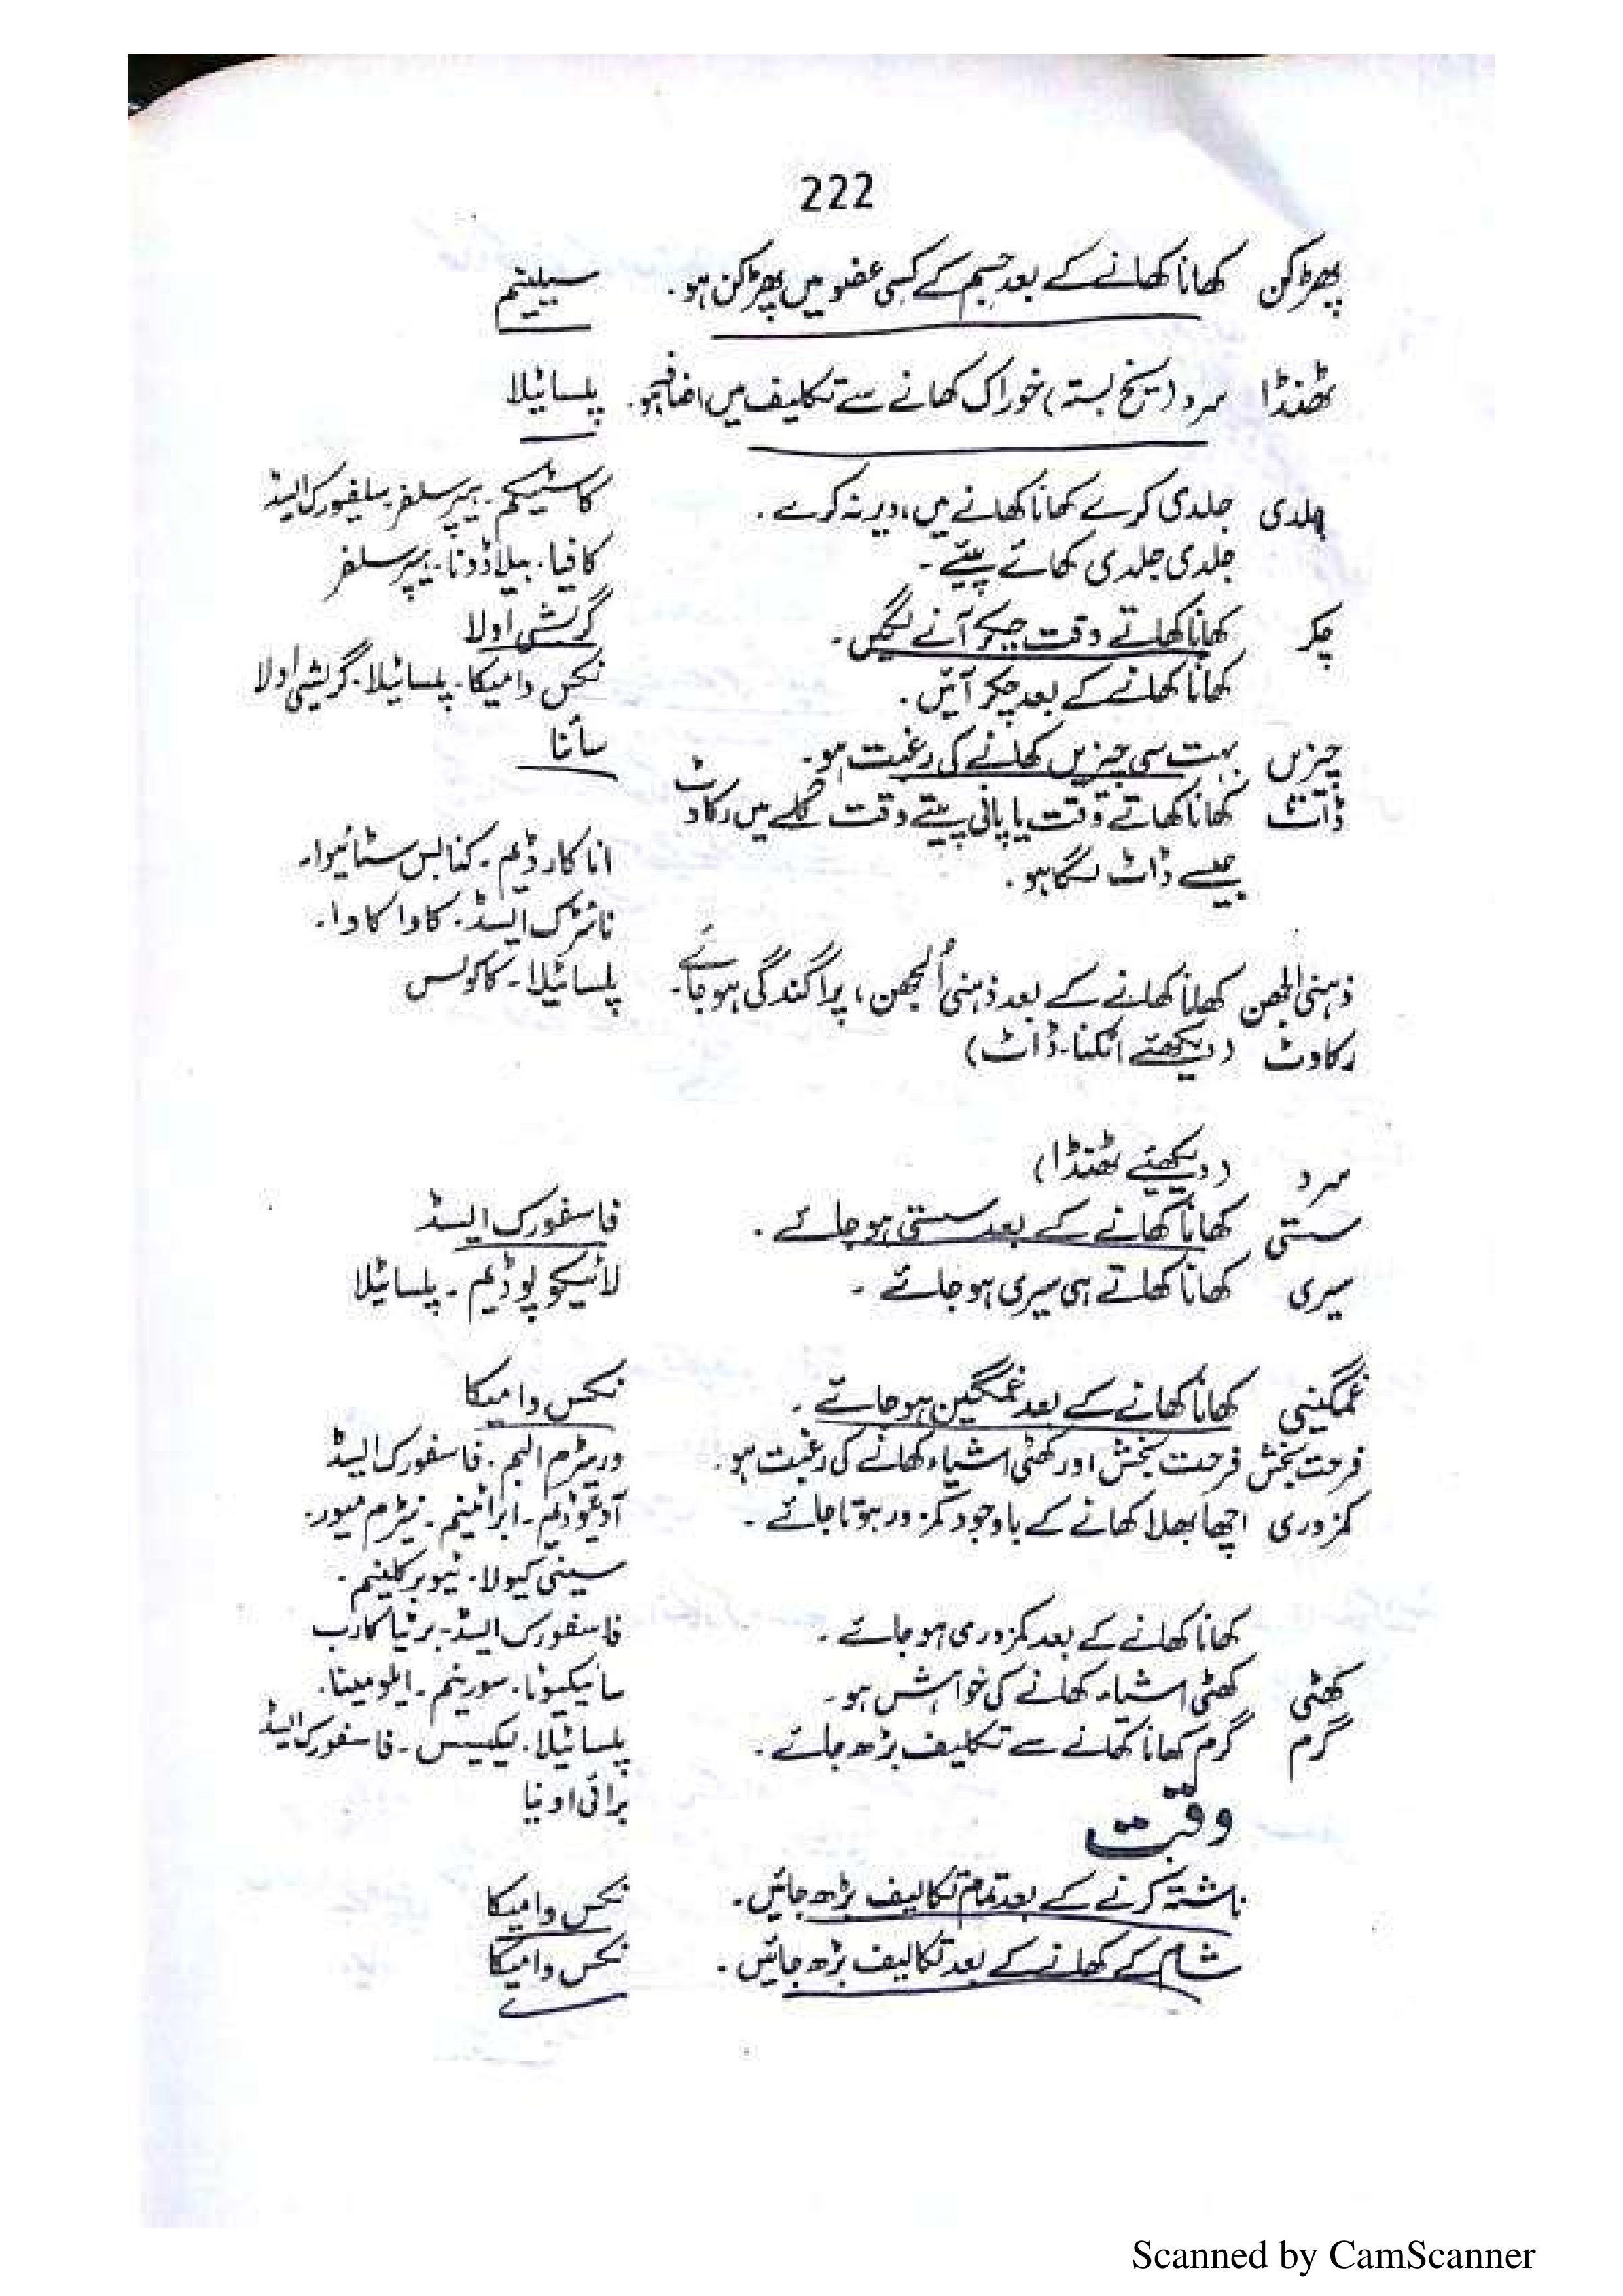 222
پھڑکن کھانا کھانے کے بعد جسم کے کسی عضو میں پھڑکن ہو۔ سیلینیم
ٹھنڈا سرد (یخ بستہ) خوراک کھانے سے تکلیف میں اضافہ ہو۔ پلساٹیلا
جلدی جلدی کرے کھانا کھانے میں، دیر نہ کرے۔ کاسٹیکم۔ ہیپر سلفر۔ سلفیورک ایسڈ
جلدی جلدی کھائے پیئے۔ کافیا۔ بیلاڈونا۔ ہیپر سلفر
چکر کھانا کھاتے وقت چکر آنے لگیں۔ گریشی اولا
کھانا کھانے کے بعد چکر آئیں۔ نکس وامیکا۔ پلساٹیلا۔ گریشی اولا
چیزیں بہت سی چیزیں کھانے کی رغبت ہو۔ سائنا
ڈاٹ کھانا کھاتے وقت یا پانی پیتے وقت گلے میں رکاوٹ
جیسے ڈاٹ لگا ہو۔ اناکارڈیم۔ کنابس سٹائیوا۔
نائٹرک ایسڈ۔ کاوا کاوا۔
ذہنی الجھن کھانا کھانے کے بعد ذہنی اُلجھن، پراگندگی ہو جائے۔ پلساٹیلا۔ کاکولس
رکاوٹ (دیکھئے اٹکنا۔ ڈاٹ)
سرد (دیکھئے ٹھنڈا)
سستی کھانا کھانے کے بعد سستی ہو جائے۔ فاسفورک ایسڈ
سیری کھانا کھاتے ہی سیری ہو جائے۔ لائیکوپوڈیم۔ پلساٹیلا
غمگینی کھانا کھانے کے بعد غمگین ہو جائے۔ نکس وامیکا
فرحت بخش فرحت بخش اور کھٹی اشیاء کھانے کی رغبت ہو۔ وریٹرم البم۔ فاسفورک ایسڈ
کمزوری اچھا بھلا کھانے کے باوجود کمزور ہوتا جائے۔ آئیوڈیم۔ ابراٹینم۔ نیٹرم میور۔
سینی کیولا۔ ٹیوبرکلینم۔
کھانا کھانے کے بعد کمزوری ہو جائے۔ فاسفورک ایسڈ۔ برٹیا کارب
کھٹی کھٹی اشیاء کھانے کی خواہش ہو۔ سائیکیوٹا۔ سورینم۔ ایلومینا۔
گرم گرم کھانا کھانے سے تکلیف بڑھ جائے۔ پلساٹیلا۔ لیکیسس۔ فاسفورک ایسڈ
برائی اونیا
وقت
ناشتہ کرنے کے بعد تمام تکالیف بڑھ جائیں۔ نکس وامیکا
شام کے کھانے کے بعد تکالیف بڑھ جائیں۔ نکس وامیکا
Scanned by CamScanner